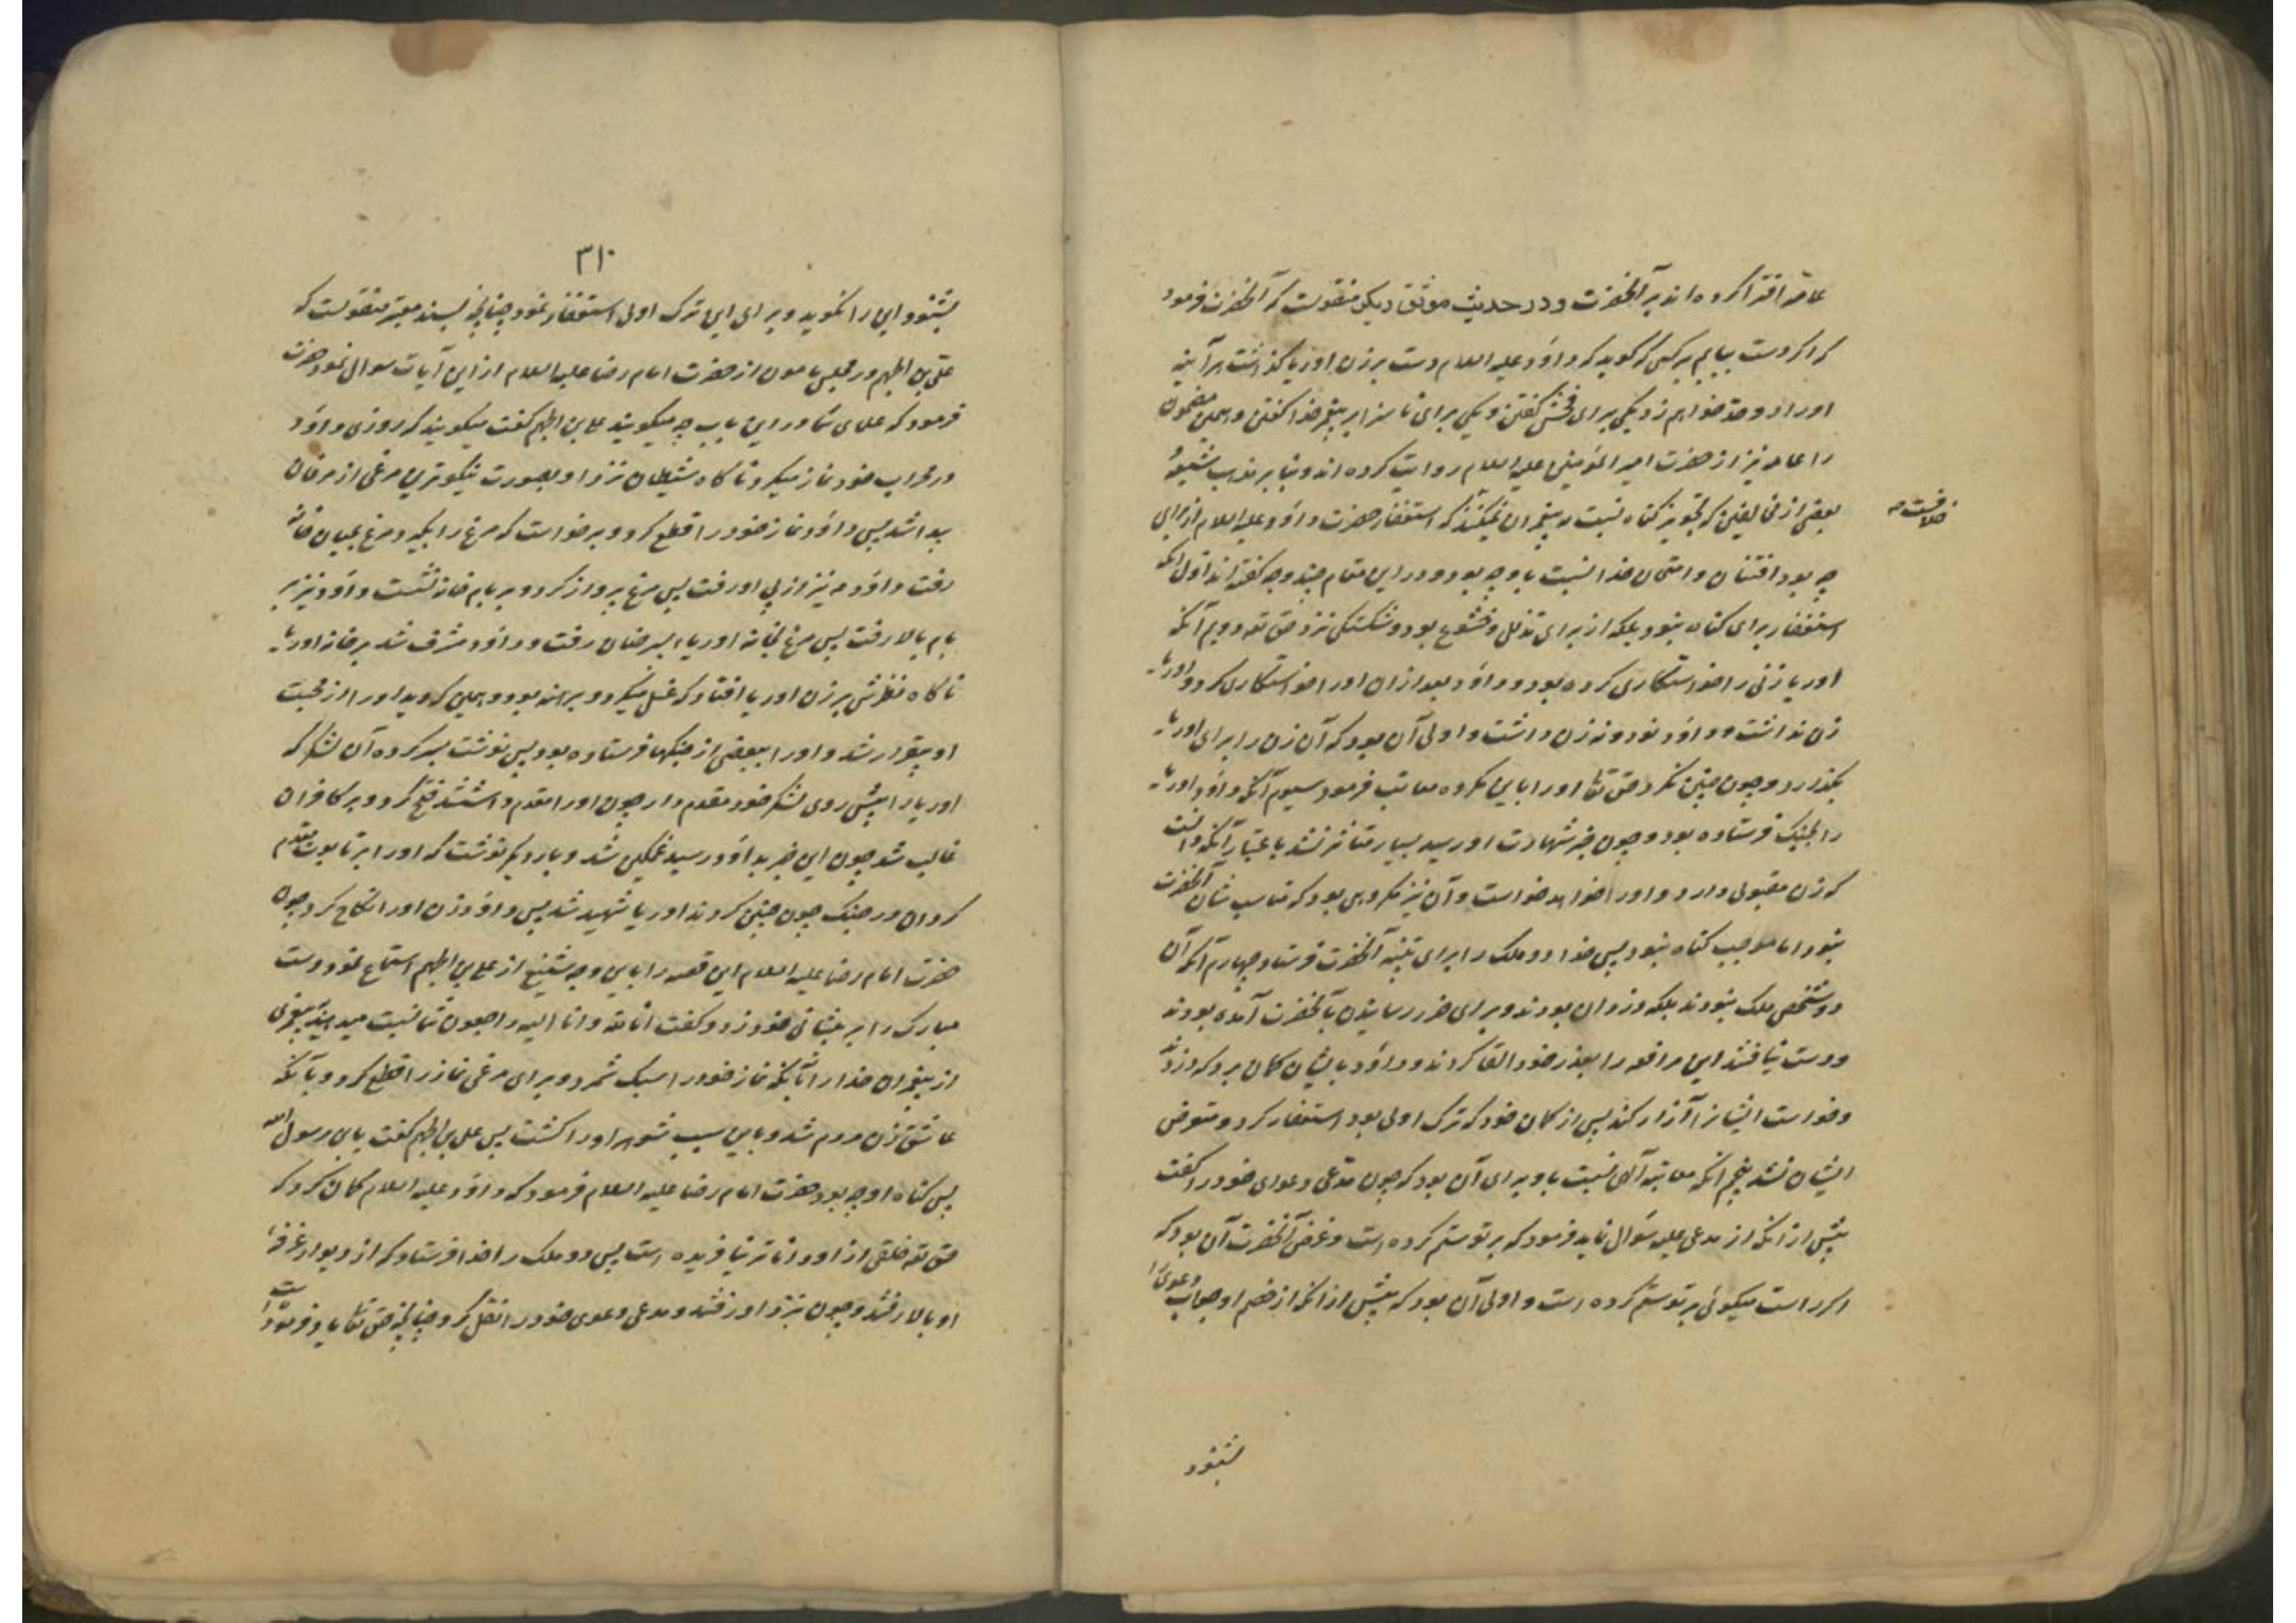 عامه افترا کرده‌اند بر آنحضرت و در حدیث موثق دیگر منقولست که آنحضرت فرمود
که اگر دست بیابم بر کسی که گوید که داود علیه السلام دست بر زن اوریا گذاشت هر آینه
او را دو حد خواهم زد یکی برای فحش گفتن و یکی برای ناسزا بر پیغمبر خدا گفتن و همین مضمون
را عامه نیز از حضرت امیر المؤمنین علیه السلام روایت کرده‌اند و بنا بر مذهب شیعه و
بعضی از مخالفین که تجویز گناه نسبت به پیغمبران نمیکنند که استغفار حضرت داود علیه السلام از برای
خلافست
چه بود افتتان و امتحان خدا نسبت باو چه بود و در این مقام چند وجه گفته‌اند اول آنکه
استغفار برای گناه نبود بلکه از برای تذلل و خشوع بود و شکستگی نزد حق تعه دویم آنکه
اوریا زنی را خواستگاری کرده بود و داود بعد از ان او را خواستگاری کرد و اوریا
زن نداشت و داود نود و نه زن داشت و اولی آن بود که آن زن را برای اوریا
بگذارد و چون چنین نکرد حق تعا او را باین مکروه معاتب فرمود سیوم آنکه داود اوریا
را بجنگ فرستاده بود و چون خبر شهادت او رسید بسیار متاثر نشد باعتبار آنکه دانست
که زن مقبولی دارد و او را خواهد خواست و آن نیز مکروهی بود که مناسب شان آنحضرت
نبود اما موجب گناه نبود پس خدا دو ملک را برای تنبیه آنحضرت فرستاد چهارم آنکه آن
دو شخص ملک نبودند بلکه دزدان بودند و برای ضرر رسانیدن بآنحضرت آمده بودند
و دست نیافتند این مرافعه را بعذر خود القا کردند و داود بایشان گمان برد که دزدند
و خواست ایشانرا آزار کند پس از گمان خود که ترک اولی بود استغفار کرد و متعرض
ایشان نشد پنجم آنکه معاتبه آلهی نسبت باو برای آن بود که چون مدعی دعوای خود را گفت
پیش از آنکه از مدعی علیه سؤال نماید فرمود که بر تو ستم کرده است و غرض آنحضرت آن بود که
اگر راست میگوئی بر تو ستم کرده است و اولی آن بود که پیش از آنکه از خصم او جواب دعوی را
بشنود
۳۱۰
بشنود این را نگوید و برای این ترک اولی استغفار نمود چنانچه بسند معتبر منقولست که
علی بن الجهم در مجلس مامون از حضرت امام رضا علیه السلام از این آیات سوال نمود حضرت
فرمود که علمای شما در این باب چه میگویند علی بن الجهم گفت میگویند که روزی داود
در محراب خود نماز میکرد ناگاه شیطان نزد او بصورت نیکوترین مرغی از مرغان
پیدا شد پس داود نماز خود را قطع کرد و برخواست که مرغ را بگیرد مرغ بمیان خانه
رفت داود نیز از پی او رفت پس مرغ پرواز کرد و بر بام خانه نشست داود نیز بر
بام بالا رفت پس مرغ بخانه اوریاء پسر حنان رفت و داود مشرف شد بر خانه اوریا
ناگاه نظرش بر زن اوریا افتاد که غسل میکرد و برهنه بود و همین که دید او را از محبت
او بیقرار شد و اوریا ببعضی از جنگها فرستاده بود پس نوشت بسرکرده آن لشکر که
اوریا را پیش روی لشکر خود مقدم دار چون او را مقدم داشتند فتح کرد و بر کافران
غالب شد چون این خبر بداود رسید غمگین شد و بار دیگر نوشت که او را بر تابوت مقدم
گردان در جنگ چون چنین کردند اوریا شهید شد پس داود زن او را نکاح کرد چون
حضرت امام رضا علیه السلام این قصه را باین وجه شنیع از علی بن الجهم استماع نمود دست
مبارک را بر پیشانی خود زد و گفت انا لله و انا الیه راجعون شما نسبت میدهید پیغمبری
از پیغمبران خدا را بآنکه نماز خود را سبک شمرد و برای مرغی نماز را قطع کرد و بآنکه
عاشق زن مردم شد و باین سبب شوهر او را کشت پس علی بن الجهم گفت یابن رسول الله
پس گناه او چه بود حضرت امام رضا علیه السلام فرمود که داود علیه السلام گمان کرد که
حق تعه خلقی از او داناتر نیافریده است پس دو ملک را خدا فرستاد که از دیوار غرفه
او بالا رفتند و چون بنزد او رفتند و مدعی دعوی خود را نقل کرد چنانچه حق تعا یاد فرموده است